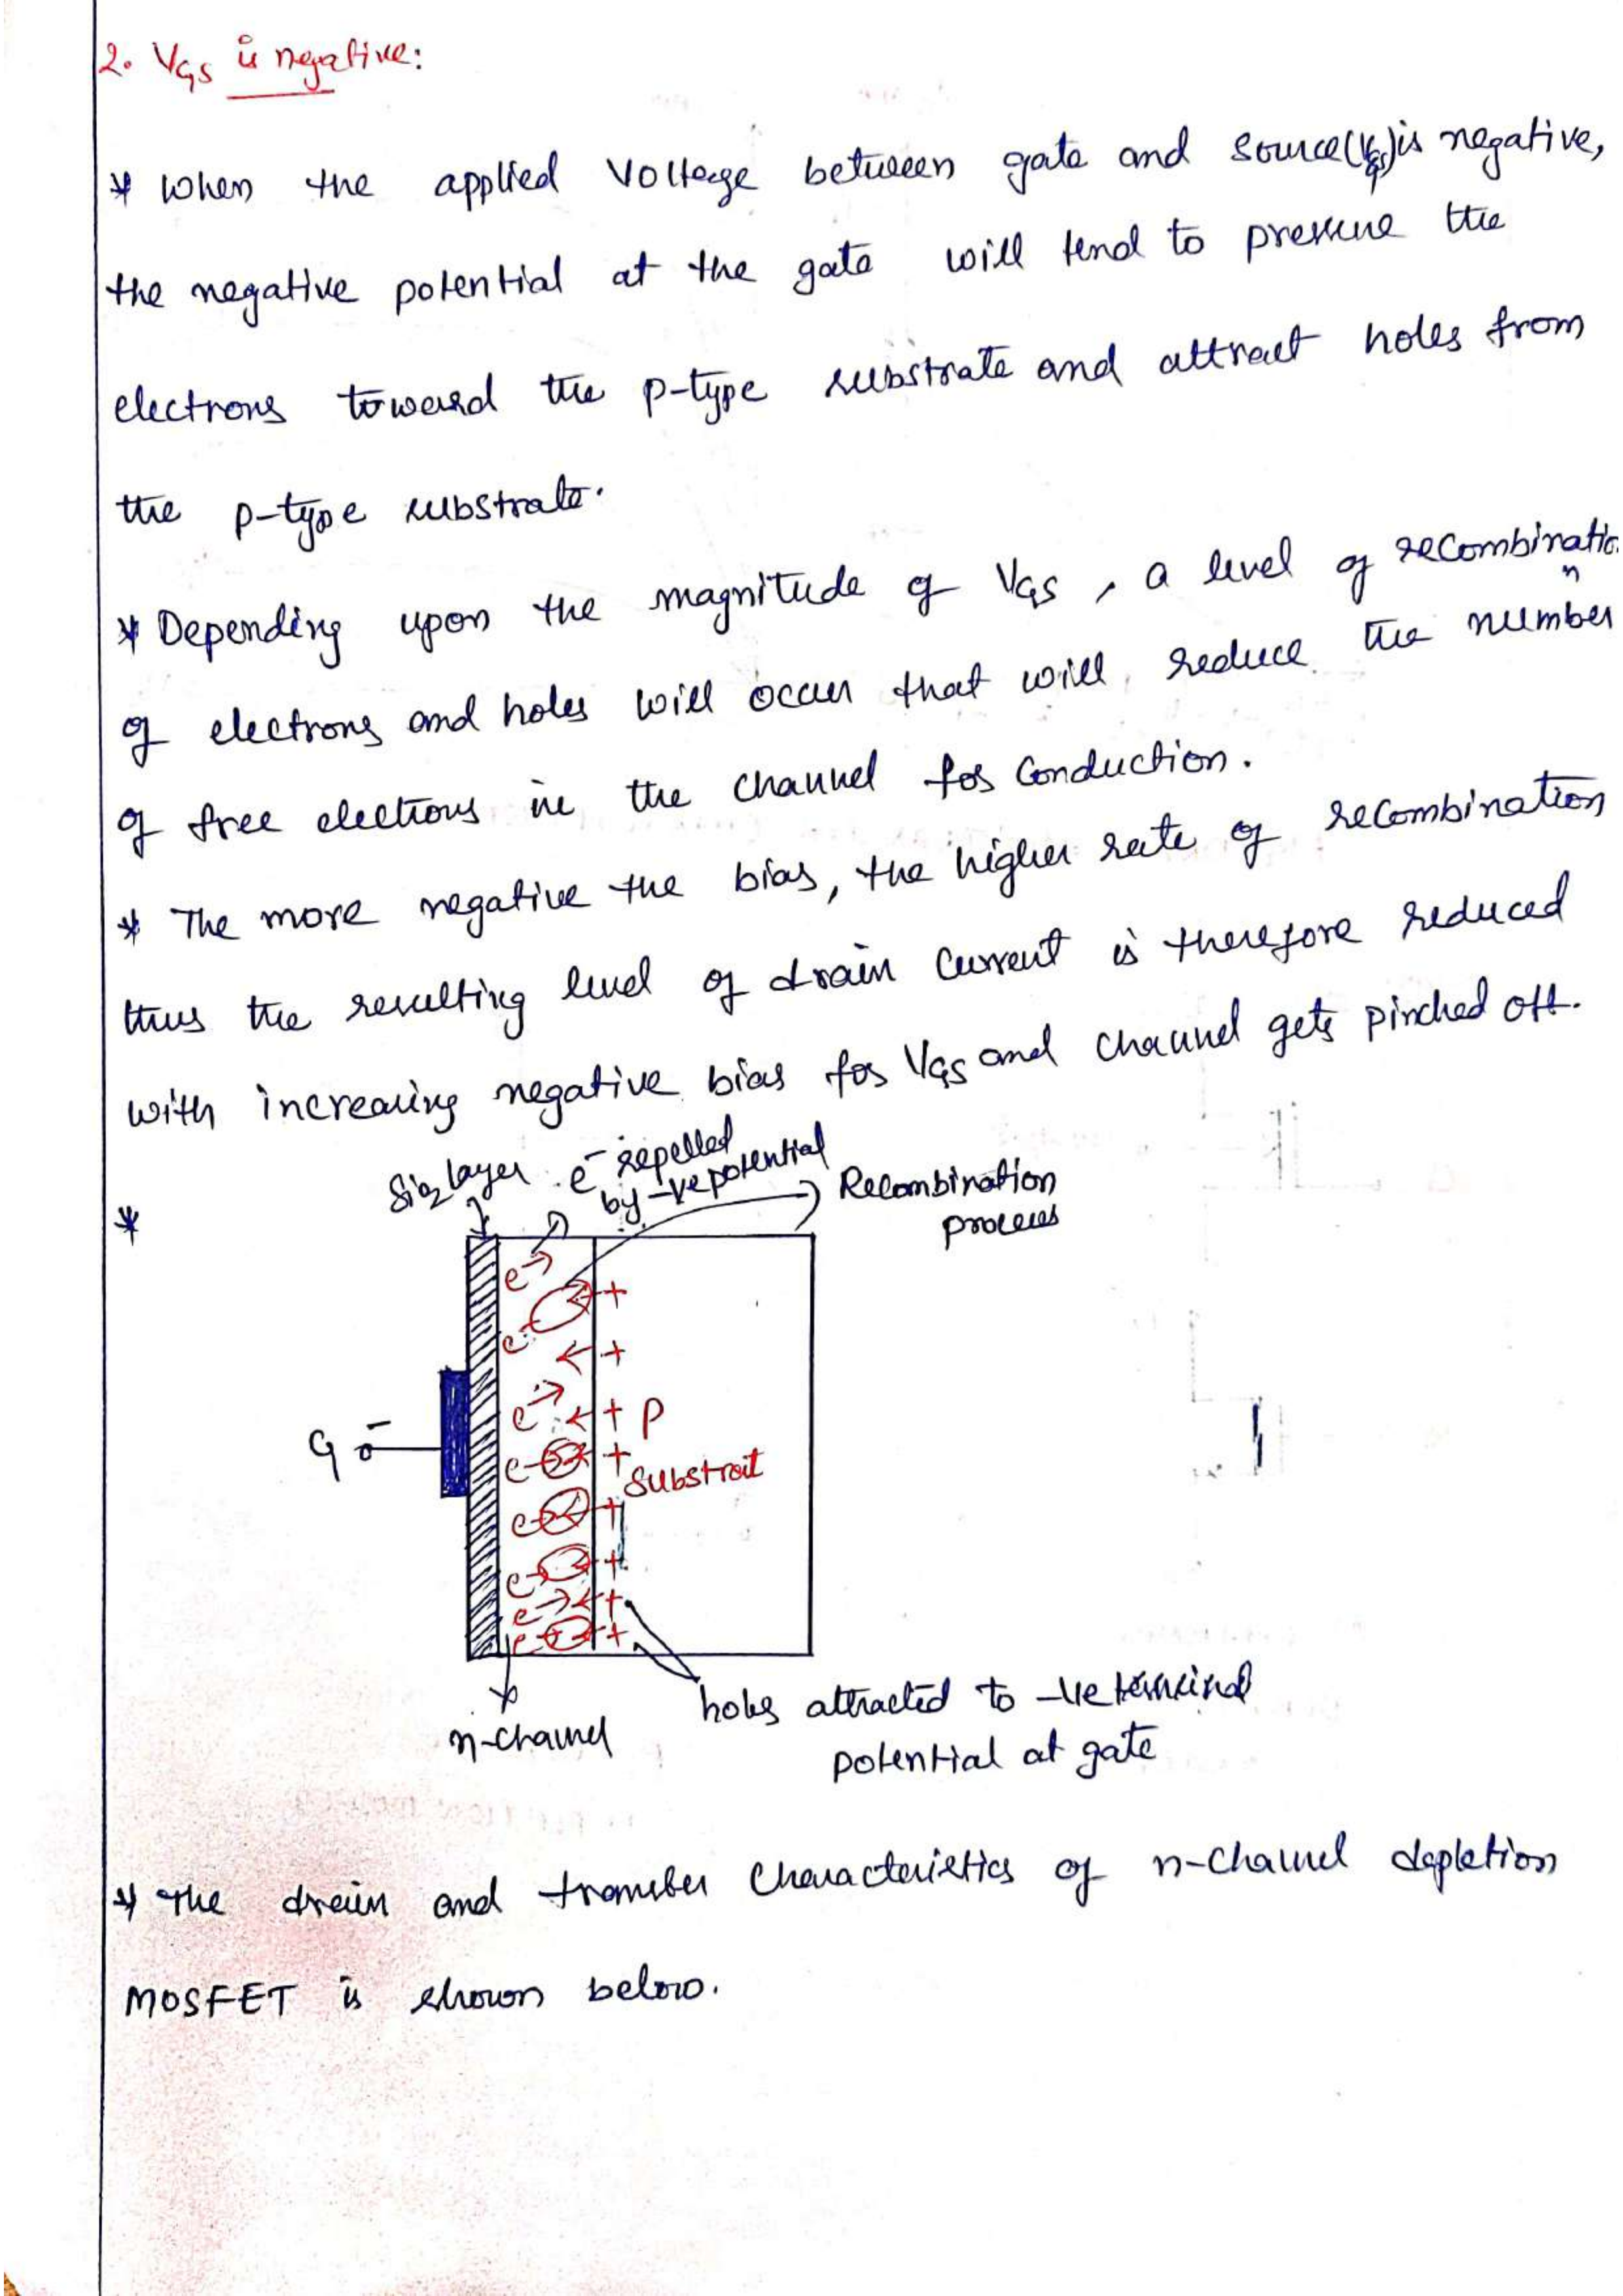 2. VGS is negative:
* When the applied voltage between gate and source(VGS) is negative,
the negative potential at the gate will tend to pressure the
electrons toward the p-type substrate and attract holes from
the p-type substrate.
* Depending upon the magnitude of VGS, a level of recombination
of electrons and holes will occur that will reduce the number
of free electrons in the channel for conduction.
* The more negative the bias, the higher rate of recombination
thus the resulting level of drain current is therefore reduced
with increasing negative bias for VGS and channel gets pinched off.
*
SiO2 layer
e⁻ repelled
by -ve potential
Recombination
process
e → 
+
e
← +
e → ← + P
e +
Substrait
e +
e +
e → ← +
e +
G -
n-channel
holes attracted to -ve terminal
potential at gate
* The drain and transfer characteristics of n-channel depletion
MOSFET is shown below.